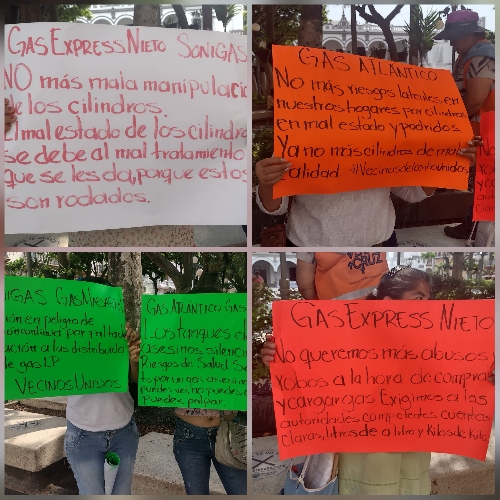 GAS EXPRESS NIETO SONIGAS
NO más mala manipulaci
de los cilindros.
El mal estado de los cilindro
se debe al mal tratamiento
que se les da, porque estos
son rodados.
GAS ATLÁNTICO
No más riesgos latentes en
nuestros hogares por cilindros
en mal estado y podridos
Ya no más cilindros de mala
calidad #Vecinosdelcaribeunidos
NIGAS GAS
ción en peligro de
continua por falta de
ución a las distribuido
de gas LP
VECINOS UNIDOS
GAS ATLÁNTICO GAS
Los tanques
asesinos silencio
Riesgos de Salud
puedes ver, no puedes
puedes palpar.
GAS EXPRESS NIETO
No queremos más abusos
robos a la hora de comprar
y cargar gas Exigimos a las
autoridades competentes cuentas
claras, litros de a litro y Kilos de Kilo